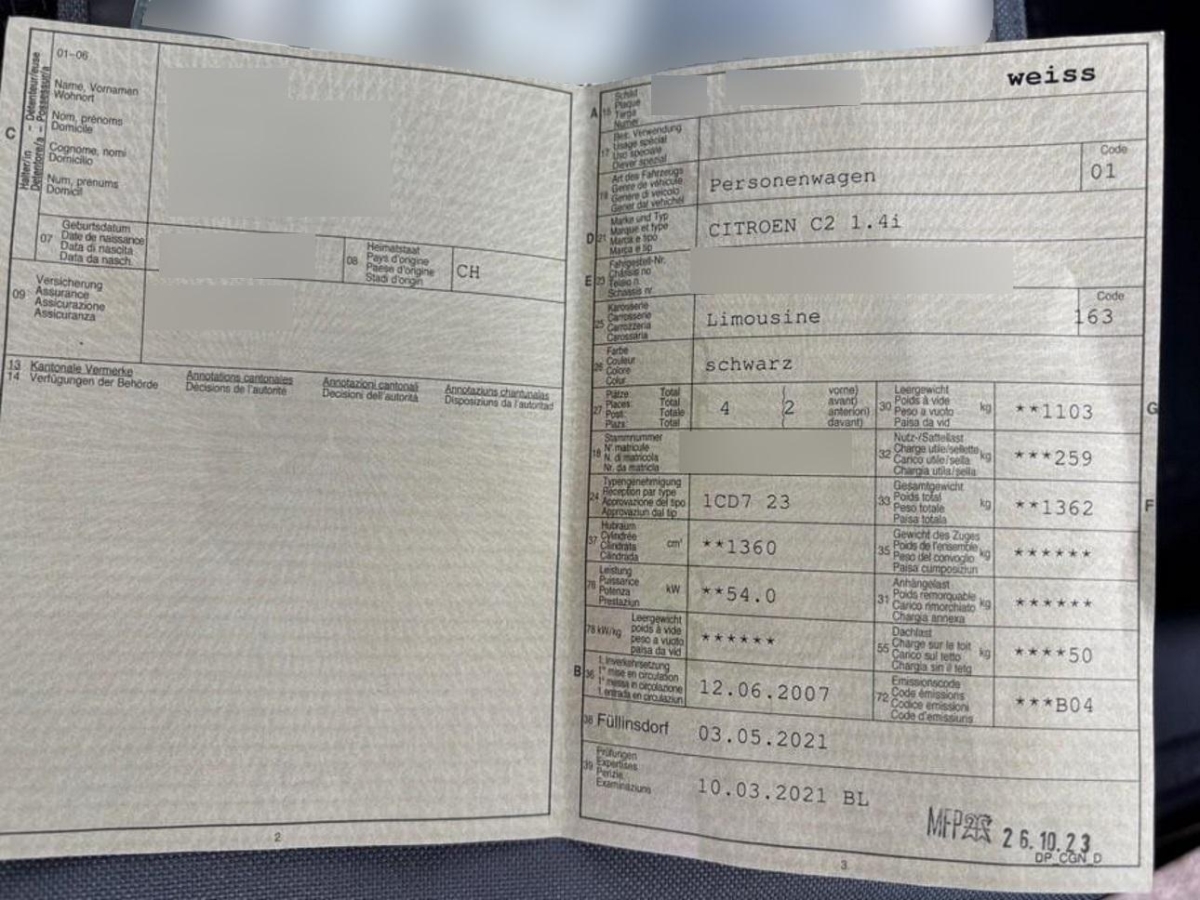 01–06
C
Halter/in - Détenteur/euse
Detentore/a - Possessur/a
Name, Vornamen
Wohnort
Nom, prénoms
Domicile
Cognome, nomi
Domicilio
Num, prenums
Domicil
07
Geburtsdatum
Date de naissance
Data di nascita
Data da nasch.
08
Heimatstaat
Pays d'origine
Paese d'origine
Stadi d'origin
CH
09
Versicherung
Assurance
Assicurazione
Assicuranza
13 Kantonale Vermerke
14 Verfügungen der Behörde
Annotations cantonales
Décisions de l'autorité
Annotazioni cantonali
Decisioni dell'autorità
Annotaziuns chantunalas
Disposiziuns da l'autoritad
2
weiss
A 15
Schild
Plaque
Targa
Numer
17
Bes. Verwendung
Usage spécial
Uso speciale
Diever spezial
19
Art des Fahrzeugs
Genre de véhicule
Genere di veicolo
Gener dal vehichel
Personenwagen
Code
01
D 21
Marke und Typ
Marque et type
Marca e tipo
Marca e tip
CITROEN C2 1.4i
E 23
Fahrgestell-Nr.
Châssis no
Telaio n.
Schassis nr.
25
Karosserie
Carrosserie
Carrozzeria
Carossaria
Limousine
Code
163
26
Farbe
Couleur
Colore
Colur
schwarz
27
Plätze Total
Places: Total
Posti: Totale
Plazs: Total
4 ( 2
vorne)
avant)
anteriori)
davant)
30
Leergewicht
Poids à vide
Peso a vuoto
Paisa da vid
kg
**1103
G
18
Stammnummer
N° matricule
N. di matricola
Nr. da matricla
32
Nutz-/Sattellast
Charge utile/sellette
Carico utile/sella
Chargia utila/sella
kg
***259
24
Typengenehmigung
Réception par type
Approvazione del tipo
Approvaziun dal tip
1CD7 23
33
Gesamtgewicht
Poids total
Peso totale
Paisa totala
kg
**1362
F
37
Hubraum
Cylindrée
Cilindrata
Cilindrada
cm³
**1360
35
Gewicht des Zuges
Poids de l'ensemble
Peso del convoglio
Paisa cumposiziun
kg
******
76
Leistung
Puissance
Potenza
Prestaziun
kW
**54.0
31
Anhängelast
Poids remorquable
Carico rimorchiato
Chargia annexa
kg
******
78 kW/kg
Leergewicht
poids à vide
peso a vuoto
paisa da vid
******
55
Dachlast
Charge sur le toit
Carico sul tetto
Chargia sin il tetg
kg
****50
B 36
1. Inverkehrsetzung
1re mise en circulation
1a messa in circolazione
1. entrada en circulaziun
12.06.2007
72
Emissionscode
Code émissions
Codice emissioni
Code d'emissiuns
***B04
38 Füllinsdorf
03.05.2021
39
Prüfungen
Expertises
Perizie
Examinaziuns
10.03.2021 BL
MFP 26.10.23
DP_CGN_D
3